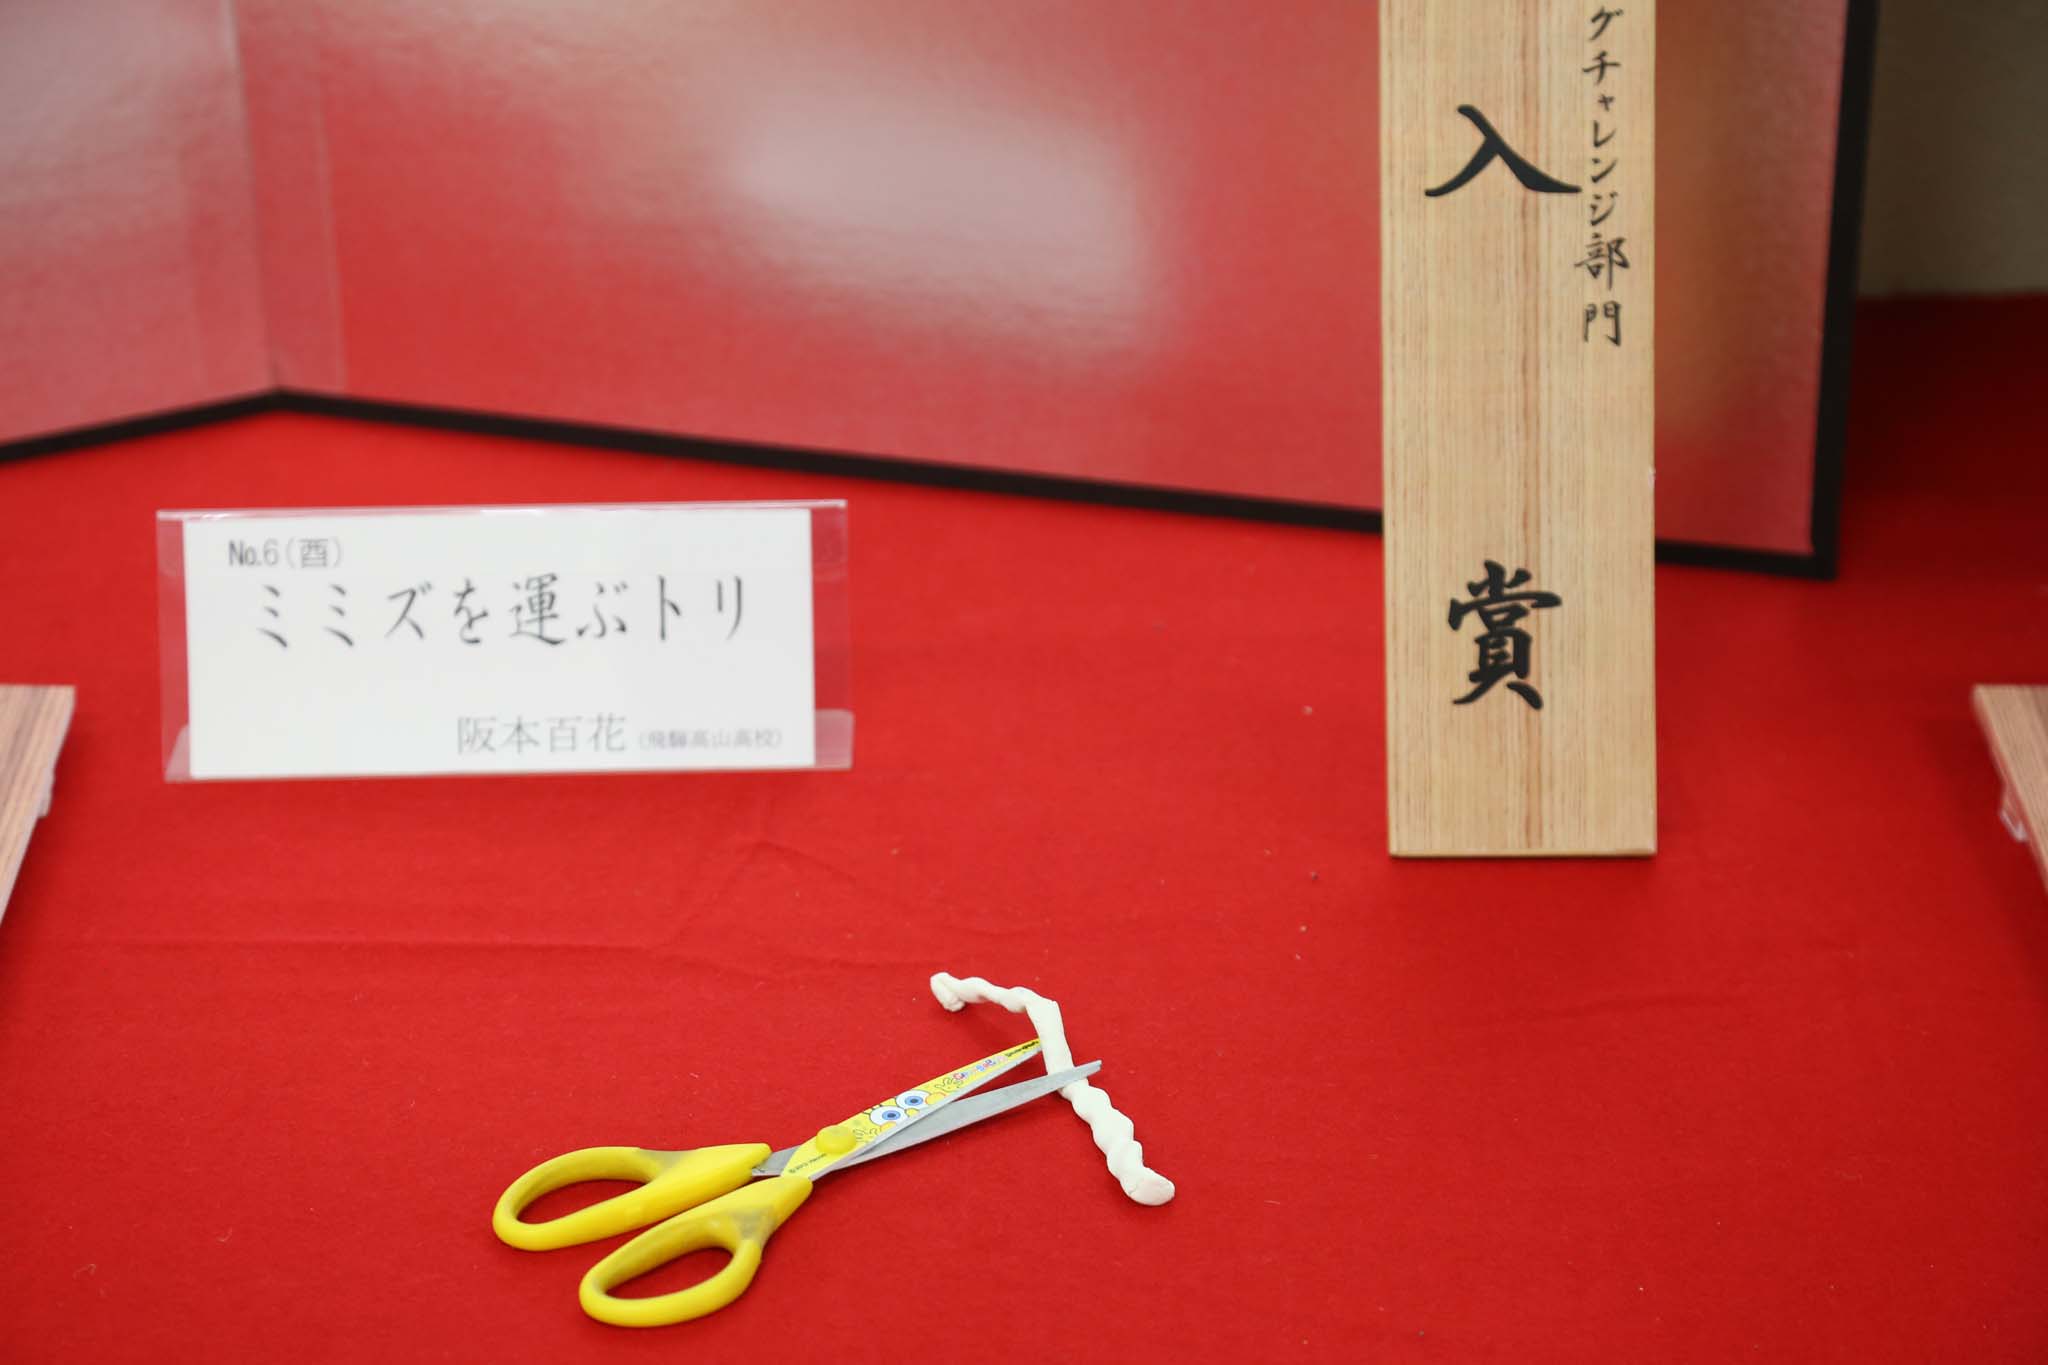 No.6(酉)
ミミズを運ぶトリ
阪本百花 (飛騨高山高校)
グチャレンジ部門
入賞